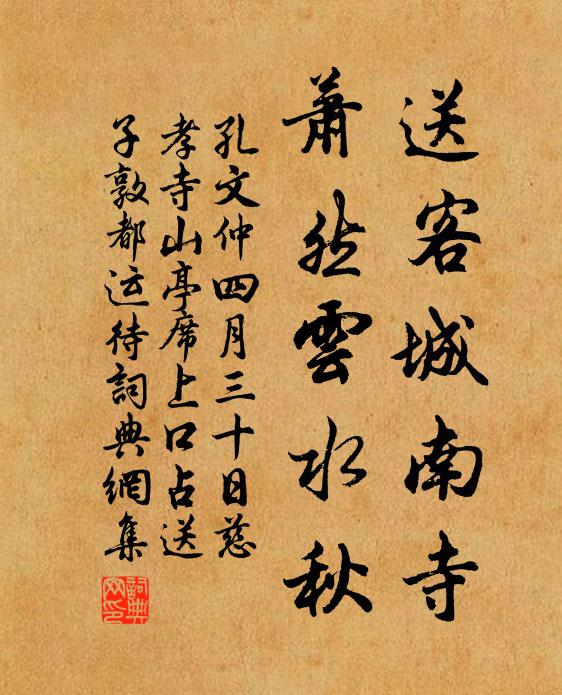 送客城南寺
蕭然雲水秋
孔文仲四月三十日慈
孝寺山亭席上口占送
子敦都运待詞典網集
詞典网印